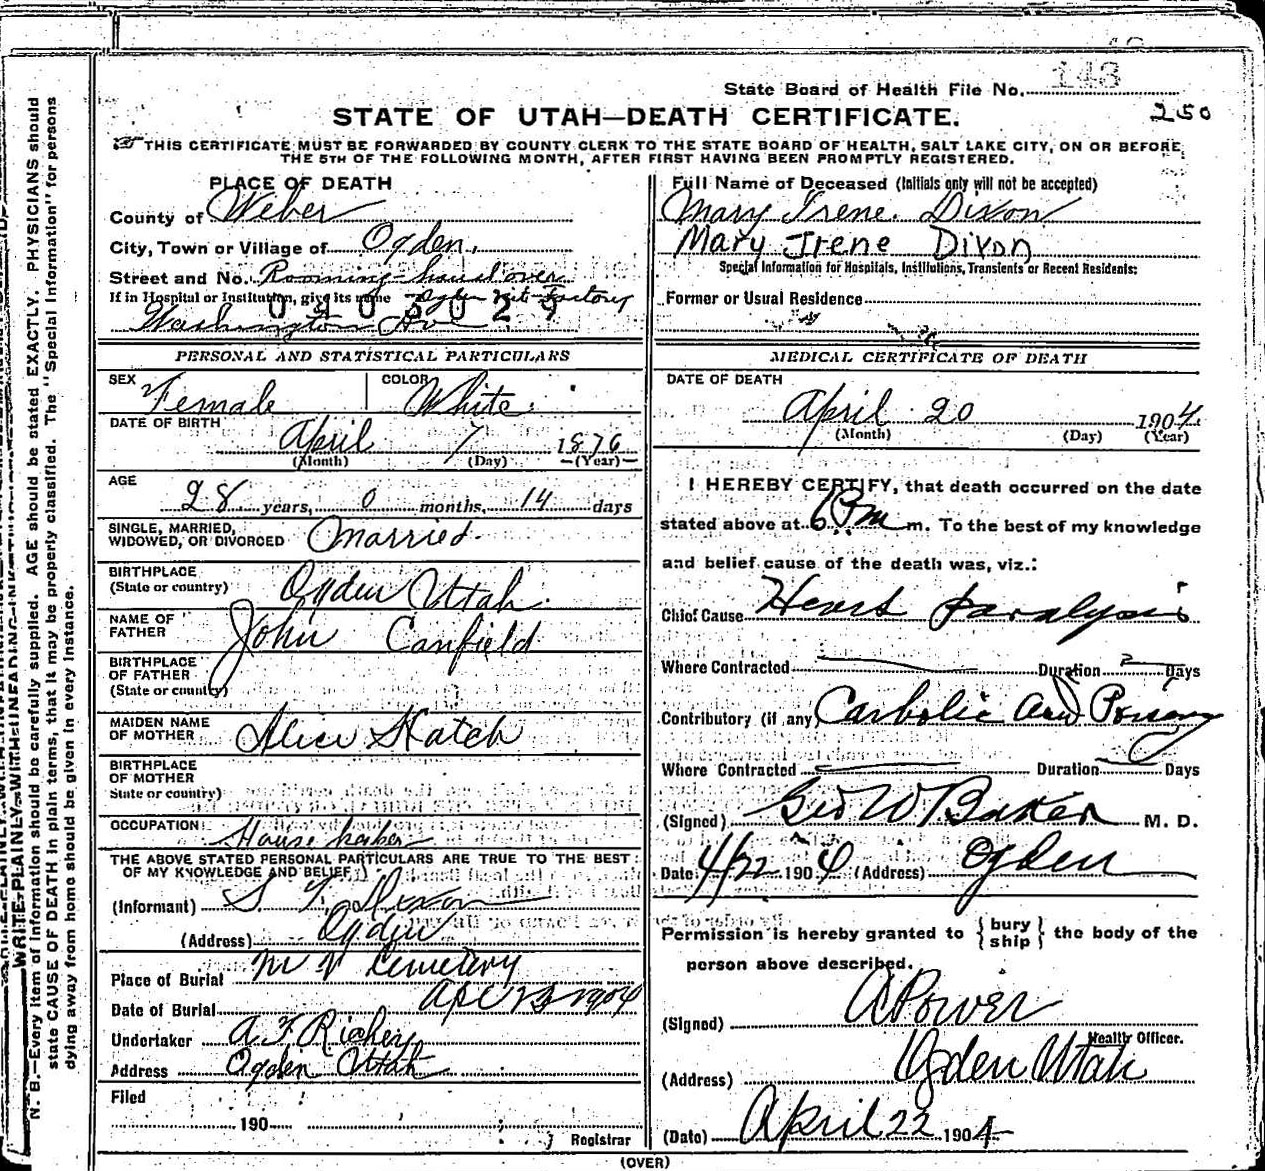 State Board of Health File No. 143
STATE OF UTAH—DEATH CERTIFICATE.
250
THIS CERTIFICATE MUST BE FORWARDED BY COUNTY CLERK TO THE STATE BOARD OF HEALTH, SALT LAKE CITY, ON OR BEFORE
THE 5TH OF THE FOLLOWING MONTH, AFTER FIRST HAVING BEEN PROMPTLY REGISTERED.
PLACE OF DEATH
County of Weber
City, Town or Village of Ogden.
Street and No. Rooming-house over
If in Hospital or Institution, give its name Factory
0405029
Washington Ave
PERSONAL AND STATISTICAL PARTICULARS
SEX Female COLOR White.
DATE OF BIRTH
April 7 1876
(Month) (Day) (Year)
AGE
28 years, 0 months, 14 days
SINGLE, MARRIED,
WIDOWED, OR DIVORCED Married.
BIRTHPLACE
(State or country) Ogden Utah.
NAME OF
FATHER John Canfield
BIRTHPLACE
OF FATHER
(State or country)
MAIDEN NAME
OF MOTHER Alice Hatch
BIRTHPLACE
OF MOTHER
State or country)
OCCUPATION House keeper
THE ABOVE STATED PERSONAL PARTICULARS ARE TRUE TO THE BEST
OF MY KNOWLEDGE AND BELIEF
(Informant) S. T. Dixon
(Address) Ogden
Place of Burial Mt V Cemetery
Date of Burial Apl 23 1904
Undertaker A. F. Richey
Address Ogden Utah
Filed
190
Registrar
Full Name of Deceased (Initials only will not be accepted)
Mary Irene Dixon
Mary Irene Dixon
Special Information for Hospitals, Institutions, Transients or Recent Residents:
Former or Usual Residence
MEDICAL CERTIFICATE OF DEATH
DATE OF DEATH
April 20 1904
(Month) (Day) (Year)
I HEREBY CERTIFY, that death occurred on the date
stated above at 6 Pm m. To the best of my knowledge
and belief cause of the death was, viz.:
Chief Cause Heart paralysis
Where Contracted Duration Days
Contributory (if any) Carbolic Acid
Where Contracted Duration Days
(Signed) Geo W Baker M. D.
Date 4/22 1904 (Address) Ogden
Permission is hereby granted to { bury
ship } the body of the
person above described.
(Signed) A Power
Health Officer.
(Address) Ogden Utah
(Date) April 22 1904
(OVER)
WRITE PLAINLY WITH
N. B.—Every item of information should be carefully supplied. AGE should be stated EXACTLY. PHYSICIANS should
state CAUSE OF DEATH in plain terms, that it may be properly classified. The "Special Information" for persons
dying away from home should be given in every instance.